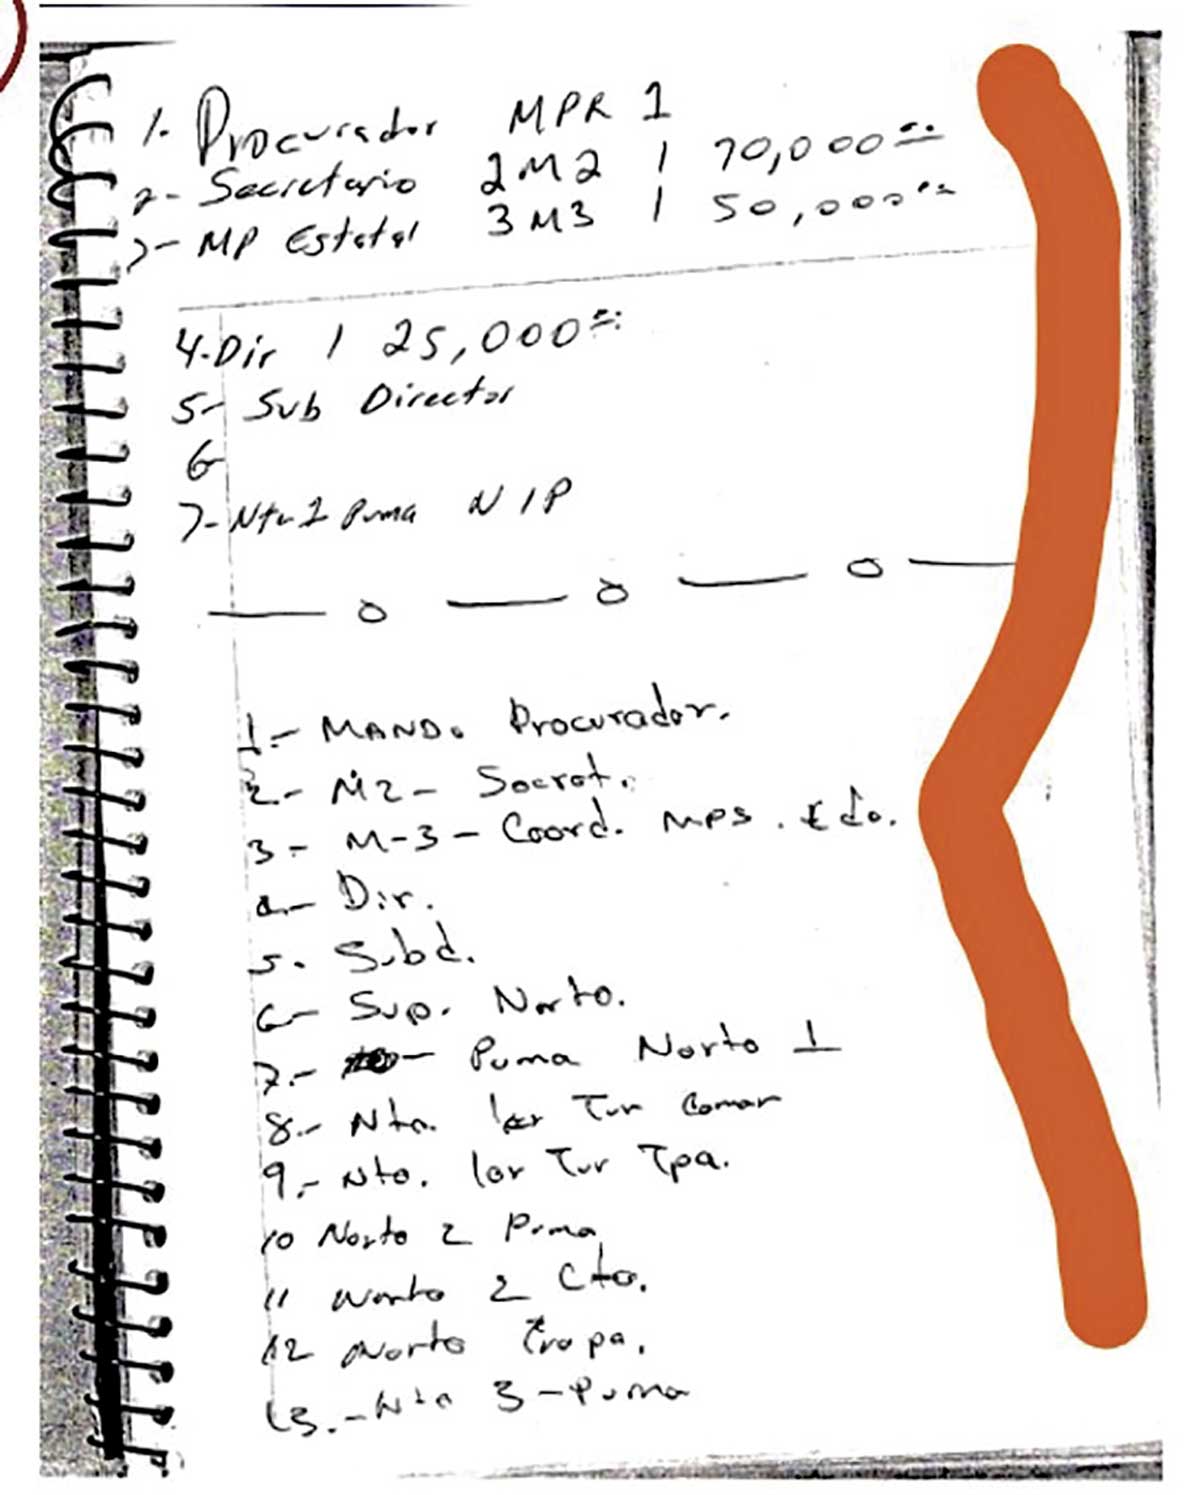 1.- Procurador MPR 1
2- Secretario 2M2 1 70,000
3- MP Estatal 3M3 1 50,000
4.Dir 1 25,000
5- Sub Director
6-
7- Nte 1 Puma N1P
1.- MANDo Procurador.
2.- M2- Socret.
3- M-3- Coord. MPS. Edo.
4.- Dir.
5. Subd.
6- Sup. Norto.
7.- Puma Norto 1
8.- Nto. 1er Tur Comar
9.- Nto. 1er Tur Tpa.
10 Norto 2 Puma
11 Norto 2 Cto.
12 Norto Tropa.
13.- Nto 3-Puma